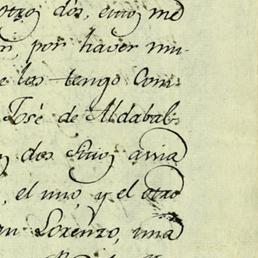 otro dos, cuyo me
n, por haver mu-
e los tengo Com-
José de Aldabal-
dos
, el uno, y el otro
an Lorenzo, una